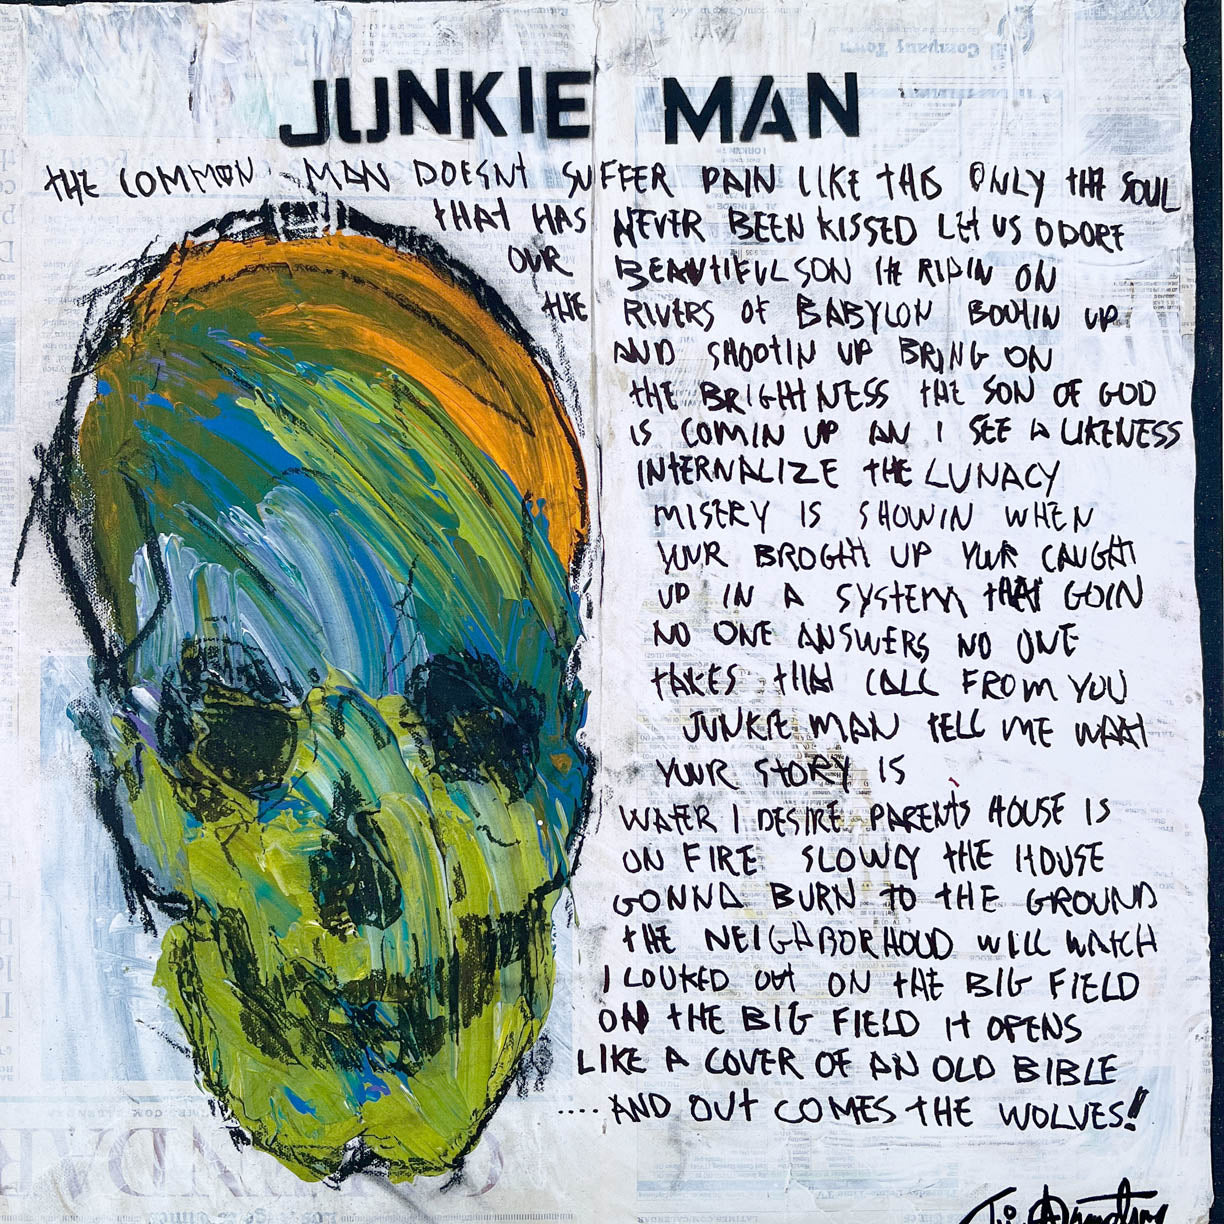 JUNKIE MAN
THE COMMON MAN DOESNT SUFFER PAIN LIKE THIS ONLY THE SOUL
THAT HAS NEVER BEEN KISSED LET US ODORE
OUR BEAUTIFUL SON IH RIDIN ON
THE RIVERS OF BABYLON BOOHIN UP
AND SHOOTIN UP BRING ON
THE BRIGHTNESS THE SON OF GOD
IS COMIN UP AN I SEE A LIKENESS
INTERNALIZE THE LUNACY
MISERY IS SHOWIN WHEN
YOUR BROGHT UP YOUR CAUGHT
UP IN A SYSTEM THAT GOIN
NO ONE ANSWERS NO ONE
TAKES THAT CALL FROM YOU
JUNKIE MAN TELL ME WHAT
YOUR STORY IS
WATER I DESIRE PARENTS HOUSE IS
ON FIRE SLOWLY THE HOUSE
GONNA BURN TO THE GROUND
THE NEIGHBORHOOD WILL WATCH
I LOOKED OUT ON THE BIG FIELD
ON THE BIG FIELD IT OPENS
LIKE A COVER OF AN OLD BIBLE
....AND OUT COMES THE WOLVES!
Tim Armstrong